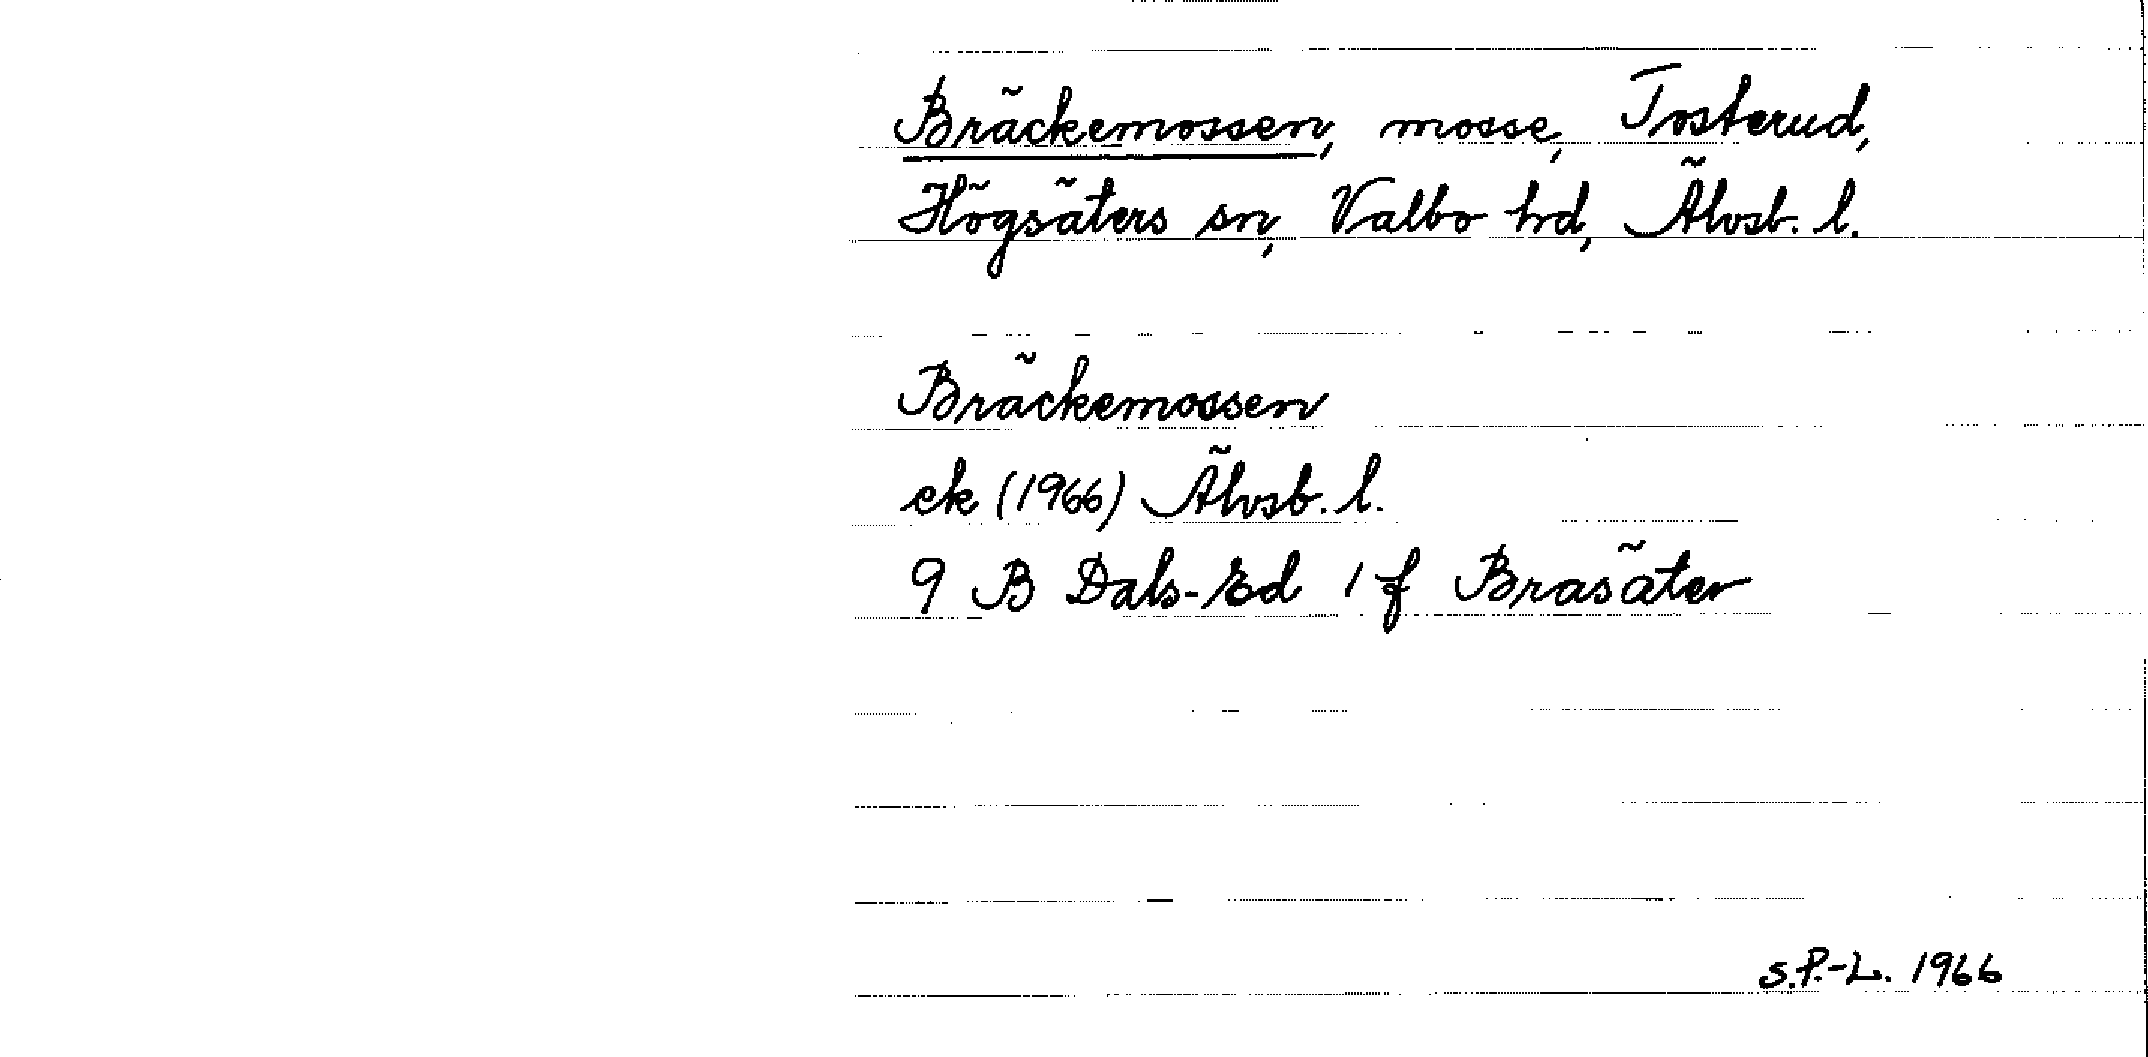 Bräckemossen, mosse, Tosterud,
Högsäters sn, Valbo hd, Älvsb. l.
Bräckemossen
ek (1966) Älvsb. l.
9 B Dals-Ed 1 f Brasäter
S.P.-L. 1966